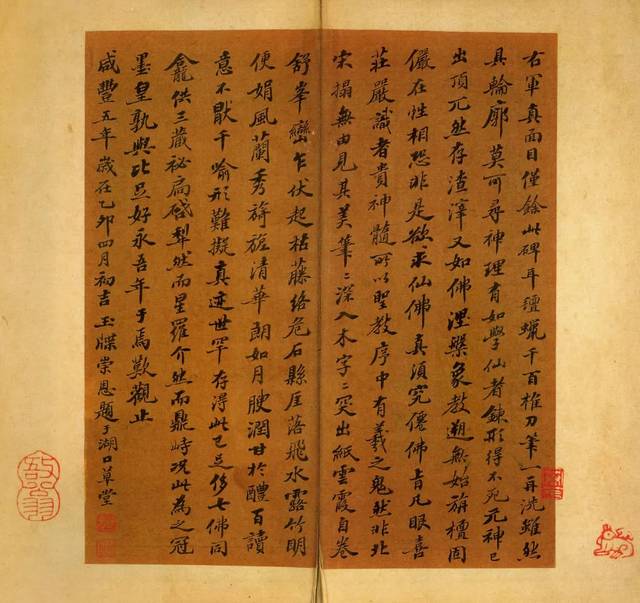 右軍真面目僅餘此碑耳氈蠟千百椎刀筆一再洗雖然
具輪廓莫可尋神理有如學仙者鍊形得不死元神已
出頂兀然存渣滓又如佛涅槃象教遡無始旃檀固
儼在性相恐非是欲求仙佛真須究僊佛旨凡眼喜
莊嚴識者貴神髓所以聖教序中有羲之鬼然非北
宋搨無由見其美筆〻深入木字〻突出紙雲霞自卷
舒峯巒乍伏起枯藤絡危石縣厓落飛水露竹明
便娟風蘭秀旖旎清華朗如月腴潤甘於醴百讀
意不猒千喻形難擬真迹世罕存得此已足侈七佛同
龕供三藏祕扃啟犁然而星羅介然而鼎峙況此為之冠
墨皇孰與比旦好永吾年于焉歎觀止
咸豐五年歲在乙卯四月初吉玉牒崇恩題于湖口草堂